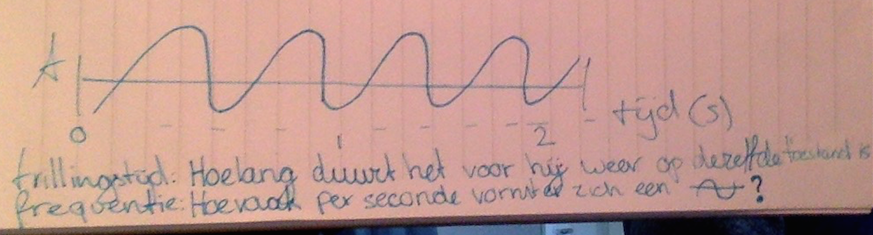 A
tijd (s)
0 1 2
trillingstijd: Hoelang duurt het voor hij weer op dezelfde toestand is
frequentie: Hoevaak per seconde vormt er zich een ?